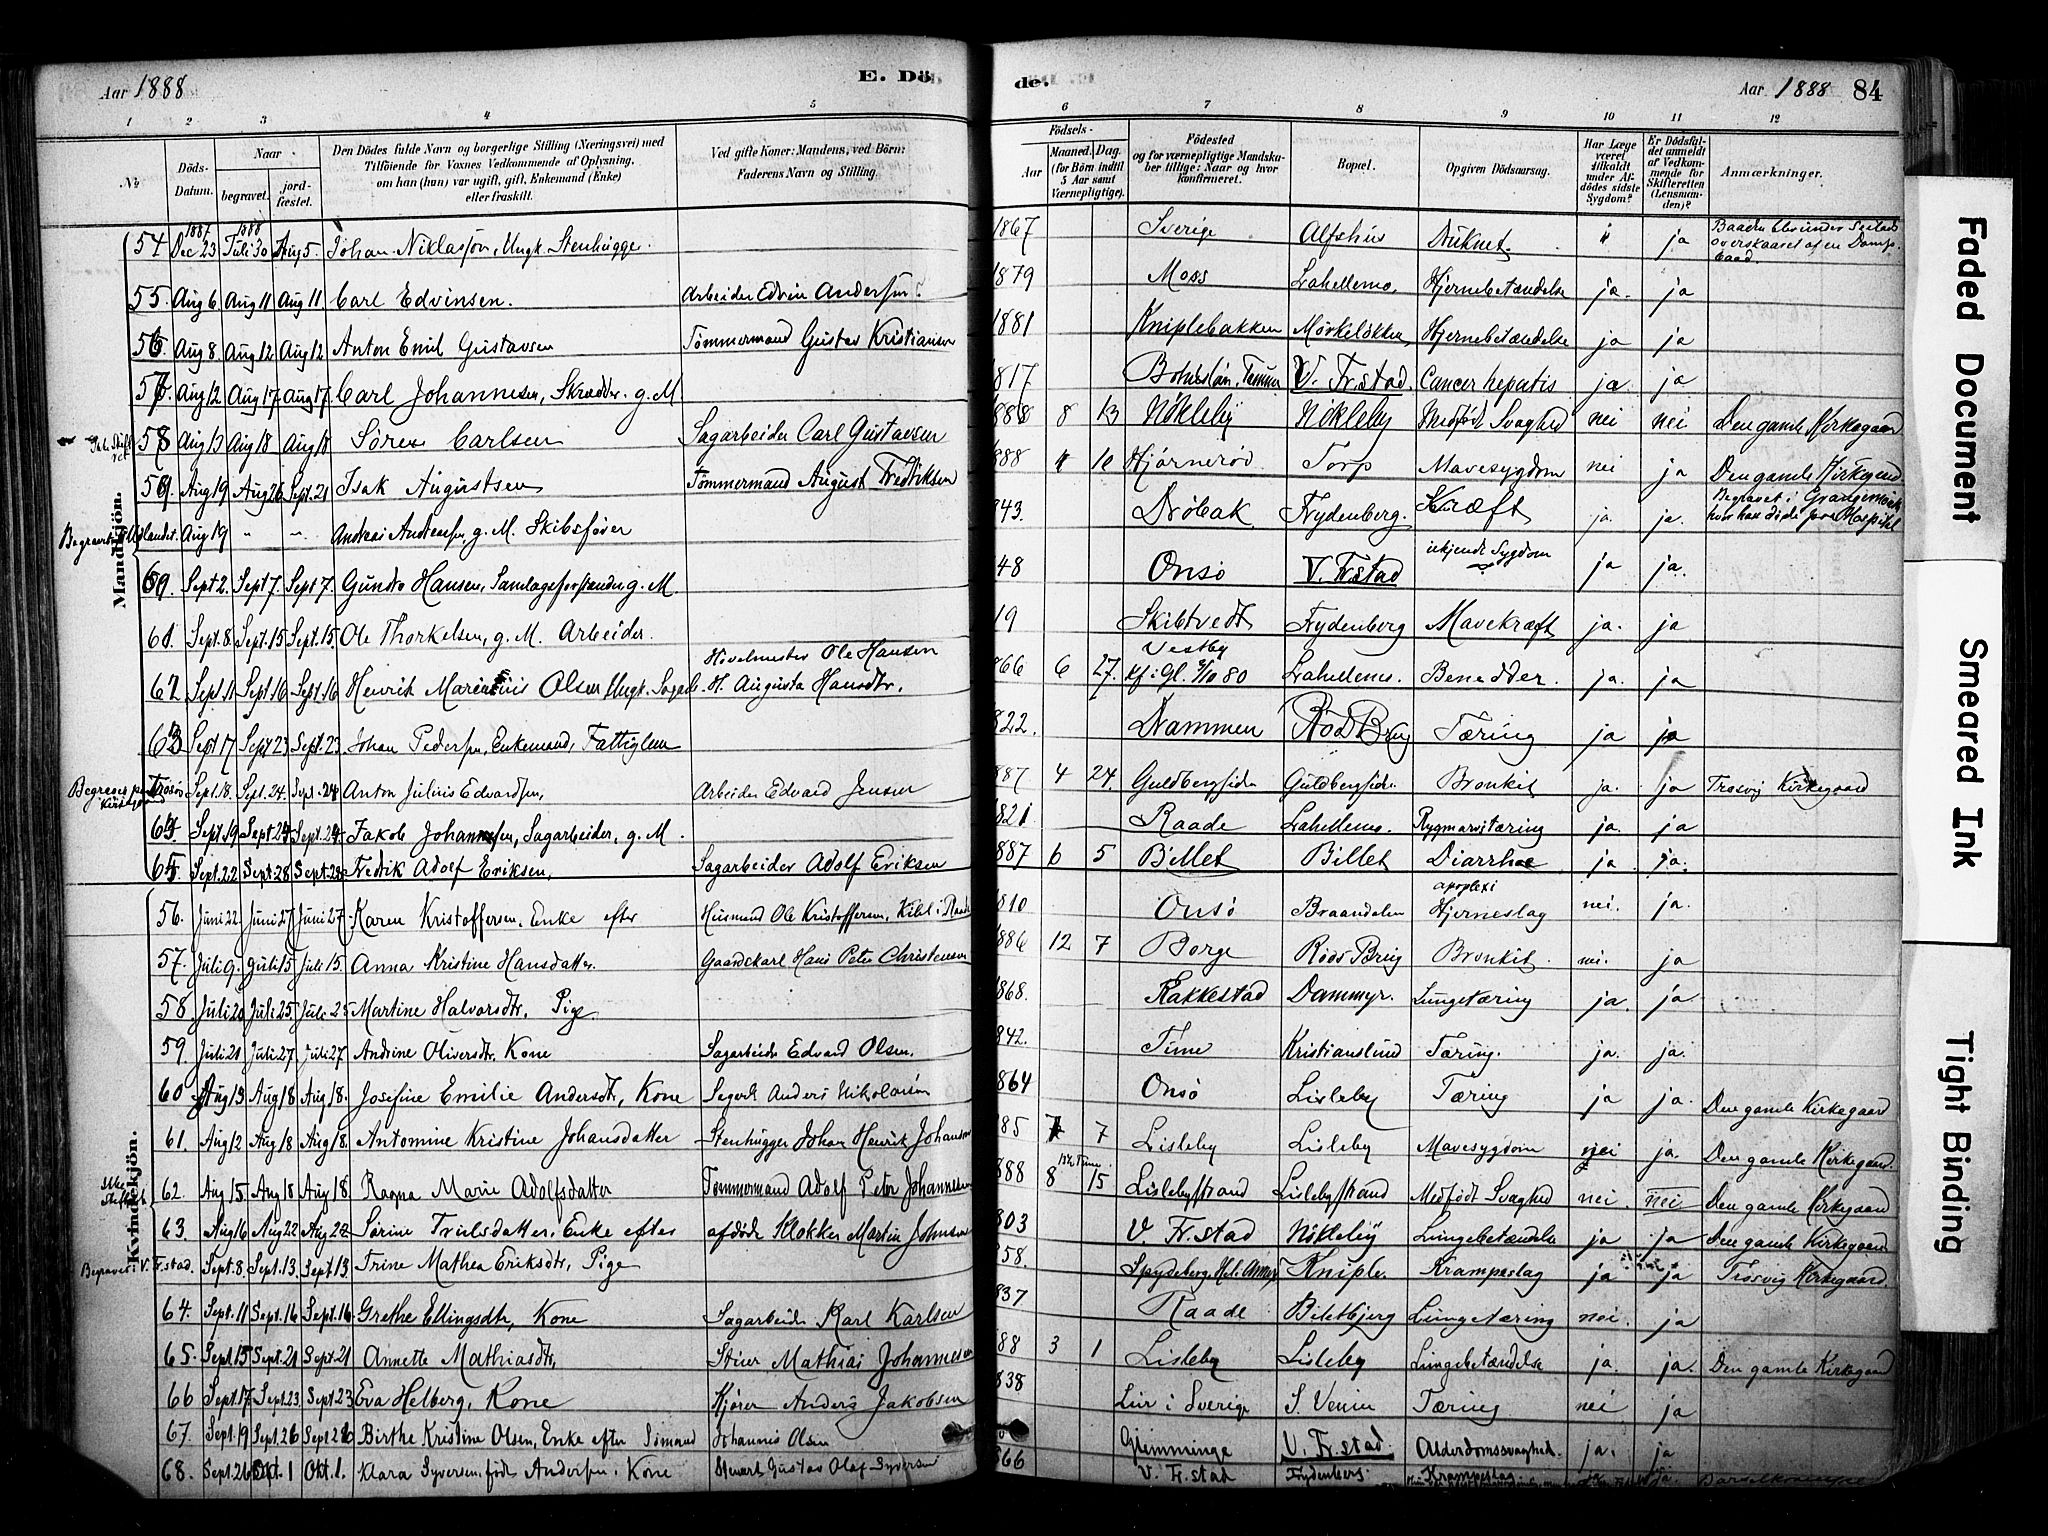 Aar 1888
E. Dö
de.
Aar 1888 84
1 2 3 4 5 6 7 8 9 10 11 12
№
Döds-Datum.
Naar
begravet.
jordfæstet.
Den Dödes fulde Navn og borgerlige Stilling (Næringsvei) med
Tilföiende for Voxnes Vedkommende af Oplysning,
om han (han) var ugift, gift, Enkemand (Enke)
eller fraskilt.
Ved gifte Koner: Mandens, ved Börn:
Faderens Navn og Stilling.
Födsels-
Aar
Maaned. Dag.
(for Börn indtil
5 Aar samt
Værnepligtige).
Födested
og for værnepligtige Mandska-
ber tillige: Naar og hvor
konfirmeret.
Bopæl.
Opgiven Dödsaarsag.
Har Læge
været
tilkaldt
under Af-
dödes sidste
Sygdom?
Er Dödsfal-
det anmeldt
af Vedkom-
mende for
Skifteretten
(Lensman-
den)?
Anmærkninger.
Mandkjön.
54. 1887 Dec 23 1888 Juli 30 Aug 5. Johan Niklassön, Ungk. Stenhugge. 1867 Sverige Alfshus Druknet. " ja
55. Aug 6 Aug 11 Aug 11 Carl Edvinsen. Arbeider Edvin Andersen. 1879 Moss Lahellemo. Hjernebetændelse ja. ja
56. Aug 8 Aug 12 Aug 12 Anton Emil Gustavsen Tömmermand Gustav Kristiansen 1881 Kniplebakken Mörkeløkken, Hjernebetændelse ja ja
57. Aug 12 Aug 17 Aug 17 Carl Johannesen, Skrædder. g. M 1817 V. Fr.stad. Cancer hepatis ja. ja
58 Aug 13 Aug 18 Aug 18 Sören Carlsen Sagarbeider Carl Gustavsen 888 8 13 Nökleby Nökleby Medfödt Svaghed nei nei Den gamle Kirkegaard
59. Aug 19 Aug 26 Sept. 21 Isak Augustsen Tömmermand August Fredriksen 888 Hjörneröd Torp Mavesygdom nei ja Den gamle Kirkegaard.
Aug 19 " " Andreas g. M. Skibsförer 843. Dröbak Frydenberg. Kræft ja. ja. Begravet i Grangemouth hvor han döde paa Hospital
Sept 2. Sept 7. Sept 7. Gundro Hansen, Samlagsforstander g. M. 48 Onsö V. Fr.stad ukjendt Sygdom ja ja.
61. Sept. 8 Sept. 15 Sept. 15. Ole Thorkelsen, g. M. Arbeider. 19 Skibtvedt Frydenberg Mavekræft ja. ja
62 Sept. 11 Sept. 16 Sept. 16 Henrik Olsen Ungk. Sagarb. Hövelmester Ole Hansen H. Augusta Hansdtr. 866 6 27. Vestby kf. i Gl. 80 Lahellemo. ja. ja
63 Sept 17 Sept 23 Sept. 23 Johan Pedersen, Enkemand, Fattiglem 822. Drammen Röds Brug Tæring ja ja
Sept. 18. Sept. 24. Sept. 24 Anton Julius Edvardsen, Arbeider Edvard Jensen 887 4 24. Guldbergsiden Guldbergsiden Bronkit ja. ja Trosvig Kirkegaard
64. Sept. 19 Sept 24 Sept. 24. Jakob Johannesen, Sagarbeider, g. M. 821 Raade Lahellemo. Rygmarvstæring ja. ja
65. Sept. 22 Sept. 28 Sept. 28 Fredrik Adolf Eriksen, Sagarbeider Adolf Eriksen 887 6 5 Billet Billet Diarrhoe ja ja.
Kvindekjön.
56. Juni 22. Juni 27 Juni 27. Karen Kristoffersen. Enke efter Husmand Ole Kristoffersen, i Raade 1810 Onsö Braandalen apoplexi Hjerneslag nei. ja.
57. Juli 9. Juli 15 Juli 15. Anna Kristine Hansdatter. Gaardskarl Hans Peter Christensen 886 12 7 Borge Röds Brug Bronkit. nei. ja
58. Juli 20 Juli 25. Juli 25 Martine Halvorsdtr, Pige. 868. Rakkestad Dammyr. Lungetæring ja. ja
59. Juli 21 Juli 27 Juli 27 Andrine Oliversdtr. Kone Sagarbeider Edvard Olsen. 842. Tune Kristianslund Tæring. ja. ja.
60. Aug 13 Aug 18 Aug. 18. Josefine Emilie Andersdtr, Kone Anders Nikolaisen 864 Onsö Lisleby Tæring ja ja. Den gamle Kirkegaard
61. Aug 12 Aug 18 Aug 18. Antomine Kristine Johansdatter Stenhugger Johan Henrik Johansen 885 7 7 Lisleby Lisleby Mavesygdom nei ja. Den gamle Kirkegaard.
62. Aug 15 Aug 18 Aug 18 Ragna Marie Adolfsdatter Tömmermand Adolf Peter Johannesen 888 8 15 Lislebystrand Lislebystrand Medfödt Svaghed nei. nei Den gamle Kirkegaard
63. Aug 16 Aug 22 Aug 22 Sörine Truulsdatter, Enke efter afdöde Klokker Martin Johnsen 803 V. Fr.stad Nökleby Lungebetændelse ja ja Den gamle Kirkegaard
Begravet i V. Fr.stad. Sept. 8. Sept. 13. Sept. 13 Trine Mathea Eriksdtr, Pige 858. Spydeberg, Kniple. Krampeslag ja ja Trosvig Kirkegaard.
64. Sept. 11 Sept. 16 Sept. 16 Grethe Ellingsdtr, Kone Sagarbeider Karl Karlsen 837 Raade Biletbjerg Lungetæring nei. ja
65. Sept. 15 Sept. 21 Sept 21 Annette Mathiasdtr, Stuer Mathias Johannesen 888 3 1 Lisleby Lisleby Lungebetændelse ja. ja. Den gamle Kirkegaard
66 Sept. 17. Sept. 23. Sept. 23 Eva Helberg, Kone Kjörer Anders Jakobsen 838 i Sverige Tæring nei ja
67. Sept. 19 Sept. 26 Sept. 26 Birthe Kristine Olsen, Enke efter Sömand Johannis Olsen Glemminge V. Fr.stad. Alderdomssvaghed. ja. ja
68. Sept. 26 Okt. 1 Okt. 1. Klara Syversen, föd Andersen. Kone Stewart Gustav Olaf Syversen 866 V. Fr.stad Frydenberg. Krampeslag ja.
Faded Document
Smeared Ink
Tight Binding